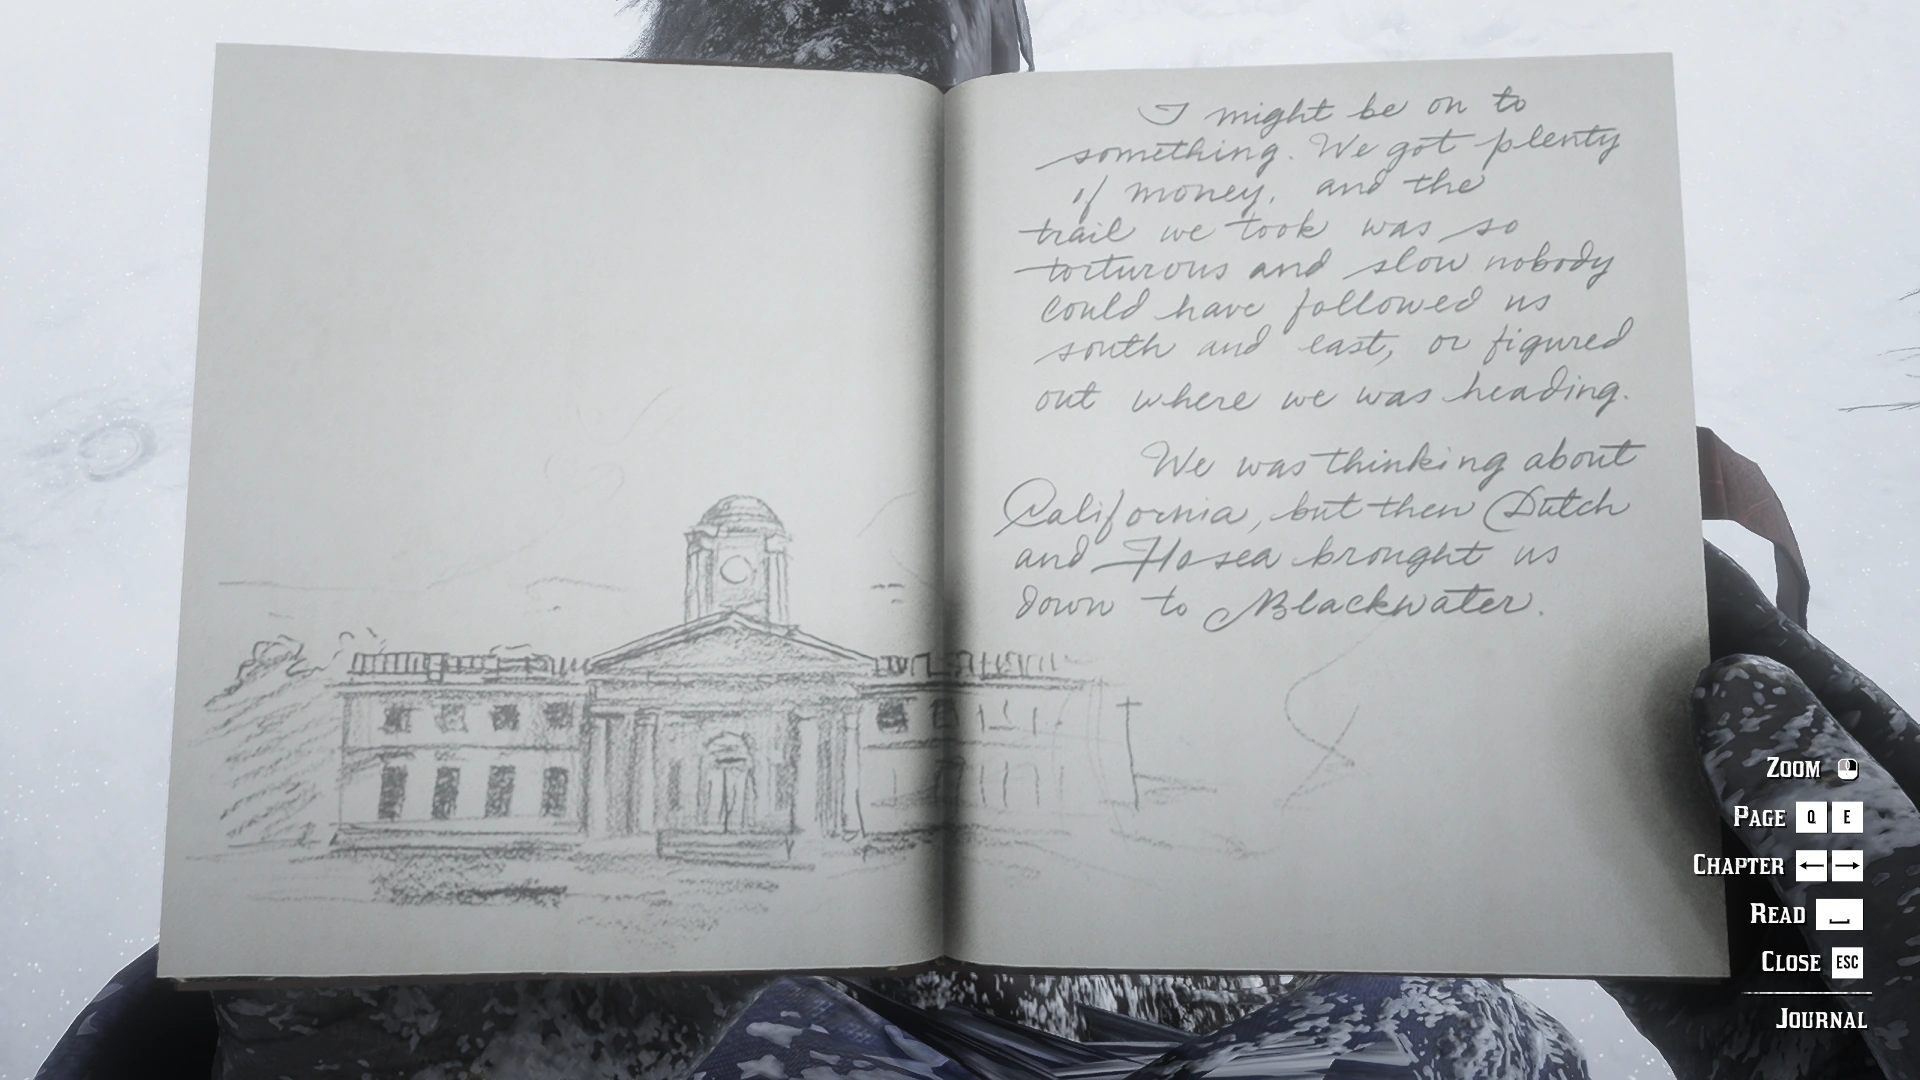 I might be on to
something. We got plenty
of money, and the
trail we took was so
torturous and slow nobody
could have followed us
south and east, or figured
out where we was heading.
We was thinking about
California, but then Dutch
and Hosea brought us
down to Blackwater.
ZOOM
PAGE Q E
CHAPTER ← →
READ
CLOSE ESC
JOURNAL